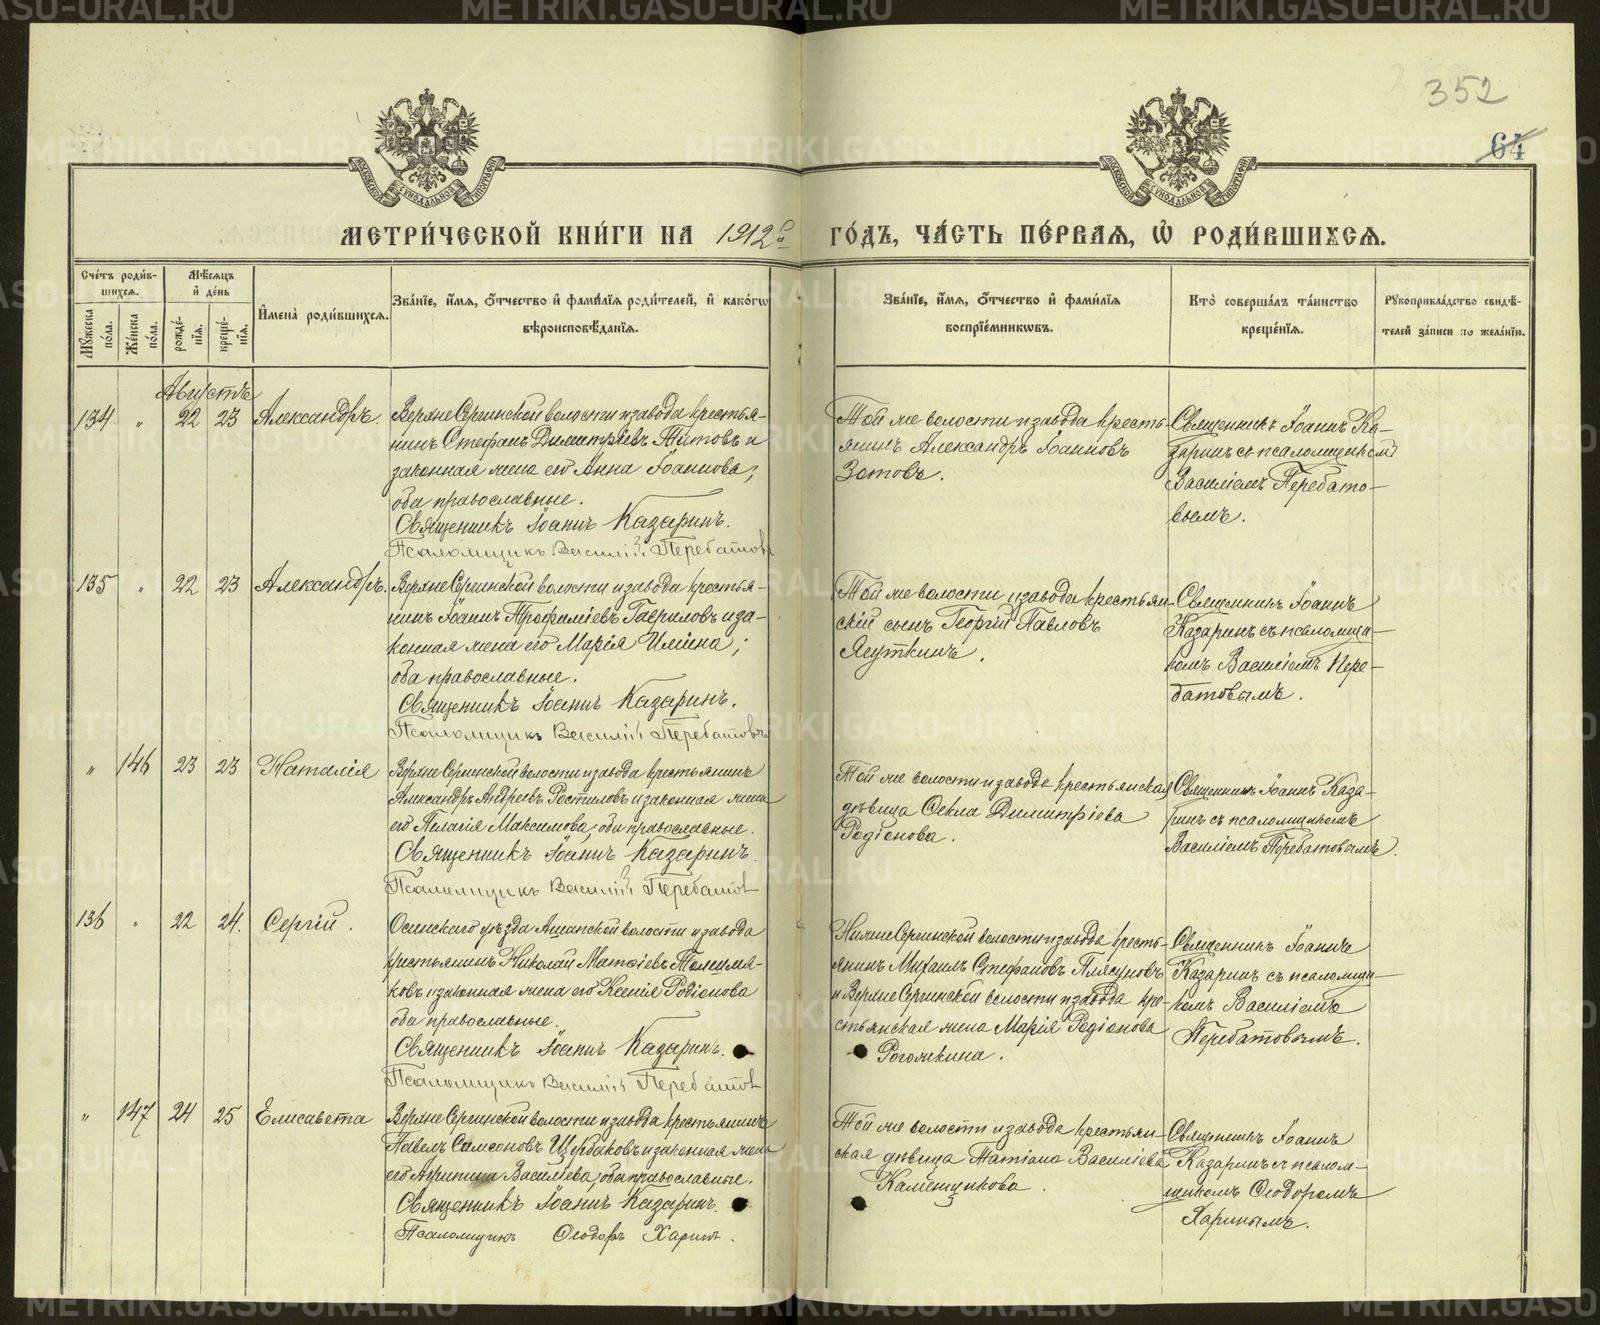 352
64
МОСКОВСКОЙ СУНОДАЛЬНОЙ ТИПОГРАФІИ
МОСКОВСКОЙ СУНОДАЛЬНОЙ ТИПОГРАФІИ
МЕТРИ́ЧЕСКОЙ КНИ́ГИ НА 1912 г. ГО́ДЪ, ЧА́СТЬ ПЕ́РВАѦ, Ѽ РОДИ́ВШИХСѦ.
Сче́тъ роди́в-
шихсѧ.
Мꙋ́жеска по́ла.
Же́нска по́ла.
Мѣ́сѧцъ
и҆ де́нь
рожде́-
нїѧ.
креще́-
нїѧ.
И҆мена̀ роди́вшихсѧ.
Зва́нїе, и҆́мѧ, ѻ҆́тчество и҆ фами́лїѧ роди́телей, и҆ како́гѡ
вѣроисповѣ́данїѧ.
Зва́нїе, и҆́мѧ, ѻ҆́тчество и҆ фами́лїѧ
воспрїе́мникѡвъ.
Кто̀ соверша́лъ та́инство
креще́нїѧ.
Рꙋкоприкла́дство свидѣ́-
телей за́писи по жела́нїю.
Августъ
134 " 22 23 Александръ.
Верхне Сергинской волости и завода крестья-
нинъ Стефанъ Димитріевъ Титовъ и
законная жена его Анна Іоаннова;
оба православные.
Священникъ Іоаннъ Казаринъ.
Псаломщикъ Василій Перебатовъ
Той же волости и завода кресть-
янинъ Александръ Іоанновъ
Зотовъ.
Священникъ Іоаннъ Ка-
заринъ съ псаломщикомъ
Василіемъ Перебато-
вымъ.
135 " 22 23 Александръ.
Верхне Сергинской волости и завода крестья-
нинъ Іоаннъ Трофиміевъ Гавриловъ и за-
конная жена его Марія Иліина;
оба православные.
Священникъ Іоаннъ Казаринъ.
Псаломщикъ Василій Перебатовъ
Той же волости и завода крестьян-
скій сынъ Георгій Павловъ
Ягуткинъ.
Священникъ Іоаннъ
Казаринъ съ псаломщи-
комъ Василіемъ Пере-
батовымъ.
" 146 23 23 Наталія
Верхне Сергинской волости и завода крестьянинъ
Александръ Андреевъ и законная жена
его Пелагія Максимова; оба православные.
Священникъ Іоаннъ Казаринъ.
Псаломщикъ Василій Перебатов
Той же волости и завода крестьянская
дѣвица Ѳекла Димитріева
Родіонова.
Священникъ Іоаннъ Каза-
ринъ съ псаломщикомъ
Василіемъ Перебатовымъ.
136 " 22 24. Сергій.
Осинскаго уѣзда Ашапской волости и завода
крестьянинъ Николай Матѳіевъ
и законная жена его Ксенія Родіонова
оба православные.
Священникъ Іоаннъ Казаринъ.
Псаломщикъ Василій Перебатов
Нижне Сергинской волости и завода кресть-
янинъ Михаилъ Стефановъ Плясуновъ
и Верхне Сергинской волости и завода кре-
стьянская жена Марія Родіонова
Рогожкина.
Священникъ Іоаннъ
Казаринъ съ псаломщи-
комъ Василіемъ
Перебатовымъ.
" 147 24 25 Елисавета
Верхне Сергинской волости и завода крестьянинъ
Павелъ Самсоновъ Щербаковъ и законная жена
его Агрипина Василіева; оба православные.
Священникъ Іоаннъ Казаринъ.
Псаломщикъ Ѳеодоръ Харинъ.
Той же волости и завода крестьян-
ская дѣвица Татіана Василіева
Каменщикова.
Священникъ Іоаннъ
Казаринъ съ псалом-
щикомъ Ѳеодоромъ
Харинымъ.
METRIKI.GASO-URAL.RU